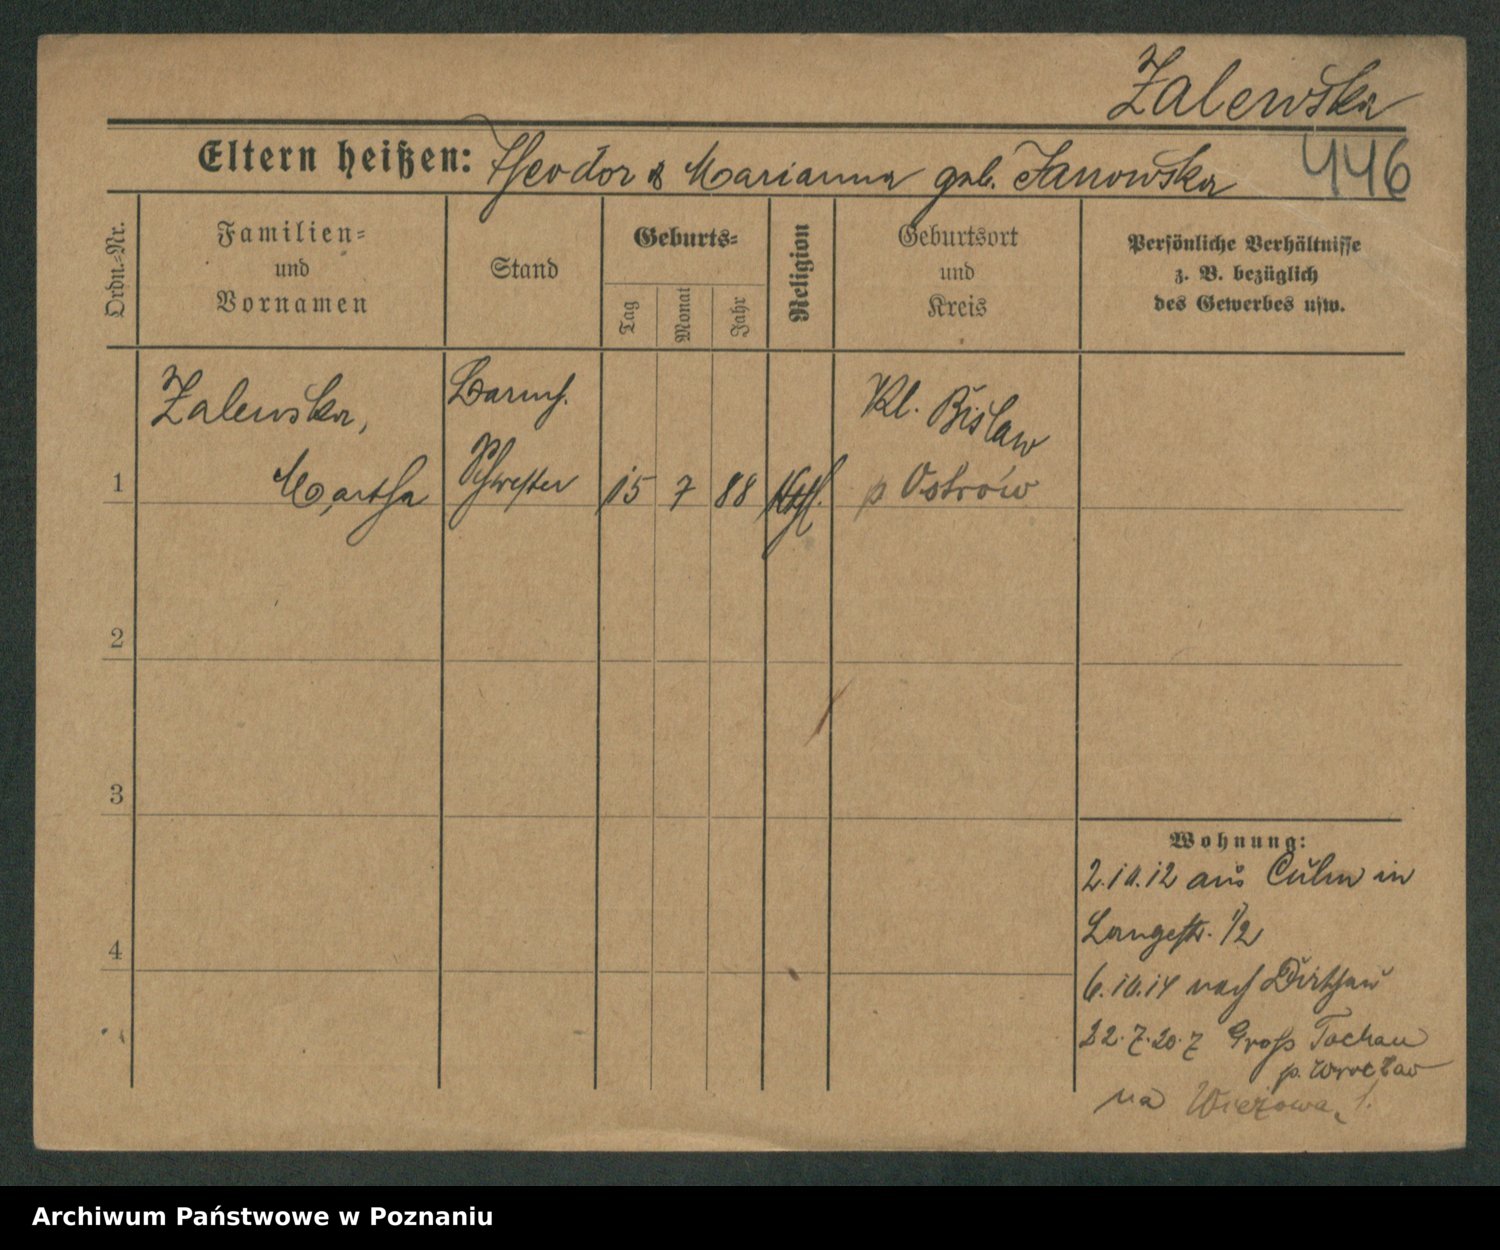 Zalewska
Eltern heißen: Theodor & Marianna geb. Janowska 446
Ordn.-Nr.
Familien-
und
Vornamen
Stand
Geburts-
Tag
Monat
Jahr
Religion
Geburtsort
und
Kreis
Persönliche Verhältnisse
z. B. bezüglich
des Gewerbes usw.
Zalewska,
Martha
Barmh.
Schwester
1 15 7 88 kath.
Kl. Bislaw
p Ostrów
2
3
4
Wohnung:
2.10.12 aus Culm in
Langestr. 1/2
6.10.14 nach
22.7.20 z Gross Tochau
p. Wrocław
na Wieżowa
Archiwum Państwowe w Poznaniu